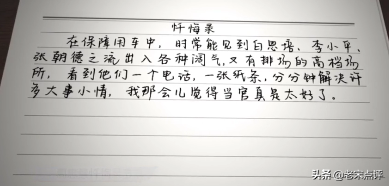 忏悔录
在保障用车中，时常能见到白思禧、李小平、
张朝德之流出入各种阔气，又有排场的高档场
所，看到他们一个电话，一张纸条，分分钟解决许
多大事小情，我那会儿觉得当官真是太好了。
头条 @老宋点评